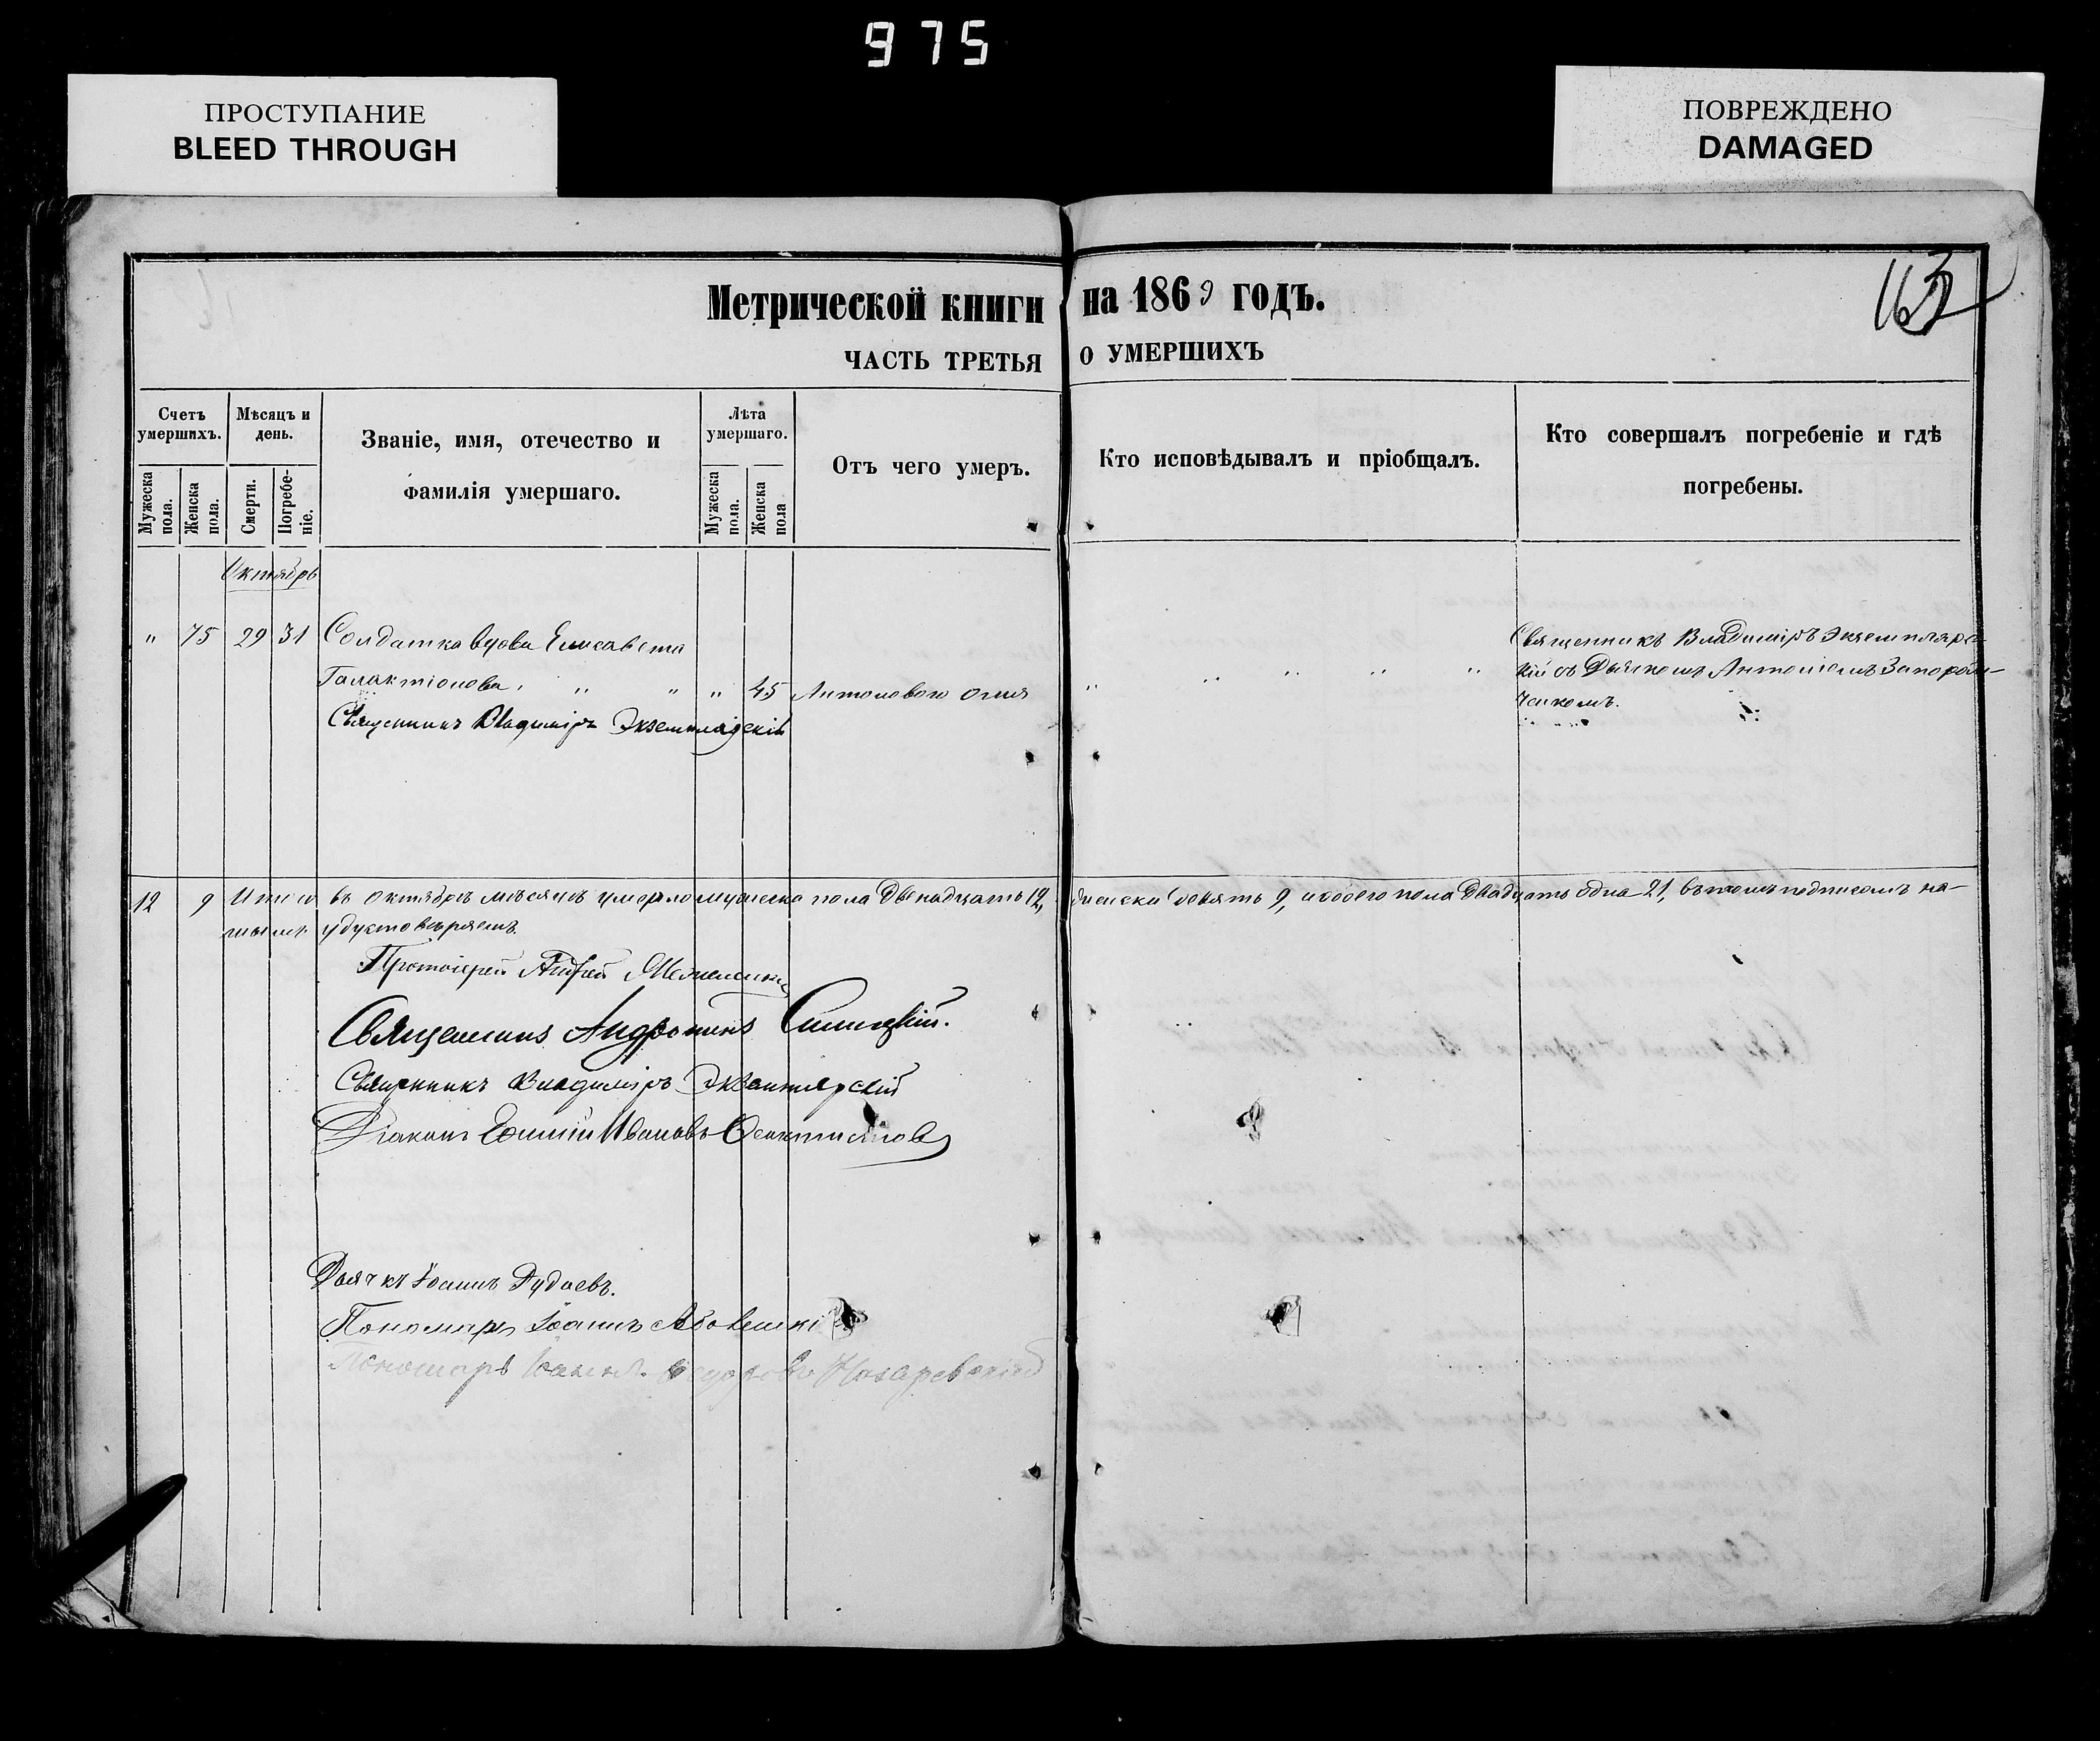 975
ПРОСТУПАНИЕ
BLEED THROUGH
ПОВРЕЖДЕНО
DAMAGED
Метрической книги на 1869 годъ.
163
ЧАСТЬ ТРЕТЬЯ О УМЕРШИХЪ
Счетъ умершихъ.
Мужеска пола.
Женска пола.
Мѣсяцъ и день.
Смерти.
Погребе-ніе.
Званіе, имя, отечество и
фамилія умершаго.
Лѣта умершаго.
Мужеска пола.
Женска пола
Отъ чего умеръ.
Кто исповѣдывалъ и пріобщалъ.
Кто совершалъ погребеніе и гдѣ
погребены.
Октябрь
" 75 29 31 Солдатка вдова Елисавета
Галактіонова " " " 45 Антонового огня " " " " "
Священникъ Владиміръ Экземпляр-
скій съ Дьячкомъ Антоніемъ
Священникъ Владиміръ Экземплярскій
12 9 Итого въ Октябрѣ мѣсяцѣ умерло мужеска пола двенадцать 12, женска девять 9, и обоего пола двадцать одна 21, въ томъ подписомъ на-
шимъ удустовѣряемъ.
Протоіерей Андрей
Священникъ Андроникъ
Священникъ Владиміръ Экземплярскій
Діаконъ Ефимій Ивановъ
Дьячкъ Іоаннъ Дудаевъ.
Пономарь Іоаннъ
Пономарь Іоаннъ Назаревскій